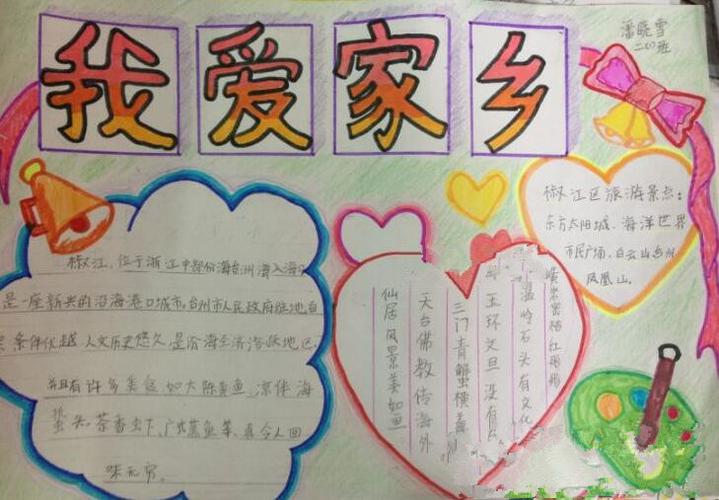 我爱家乡
潘晓雪
二(2)班
椒江,位于浙江中部份海台州湾入海口
是一座新兴的沿海港口城市,台州市人民政府驻地,自
条件优越,人文历史悠久,是沿海经济活跃地区.
并且有许多美食,如大陈黄鱼,凉伴海
蜇头,茶香虾,广式蒸鱼等,真令人回
味无穷.
椒江区旅游景点:
东方太阳城、海洋世界
市民广场、白云山台州
凤凰山.
温岭石头有文化
玉环文旦没有
三门青蟹横着
天台佛教传海外
仙居风景美如画